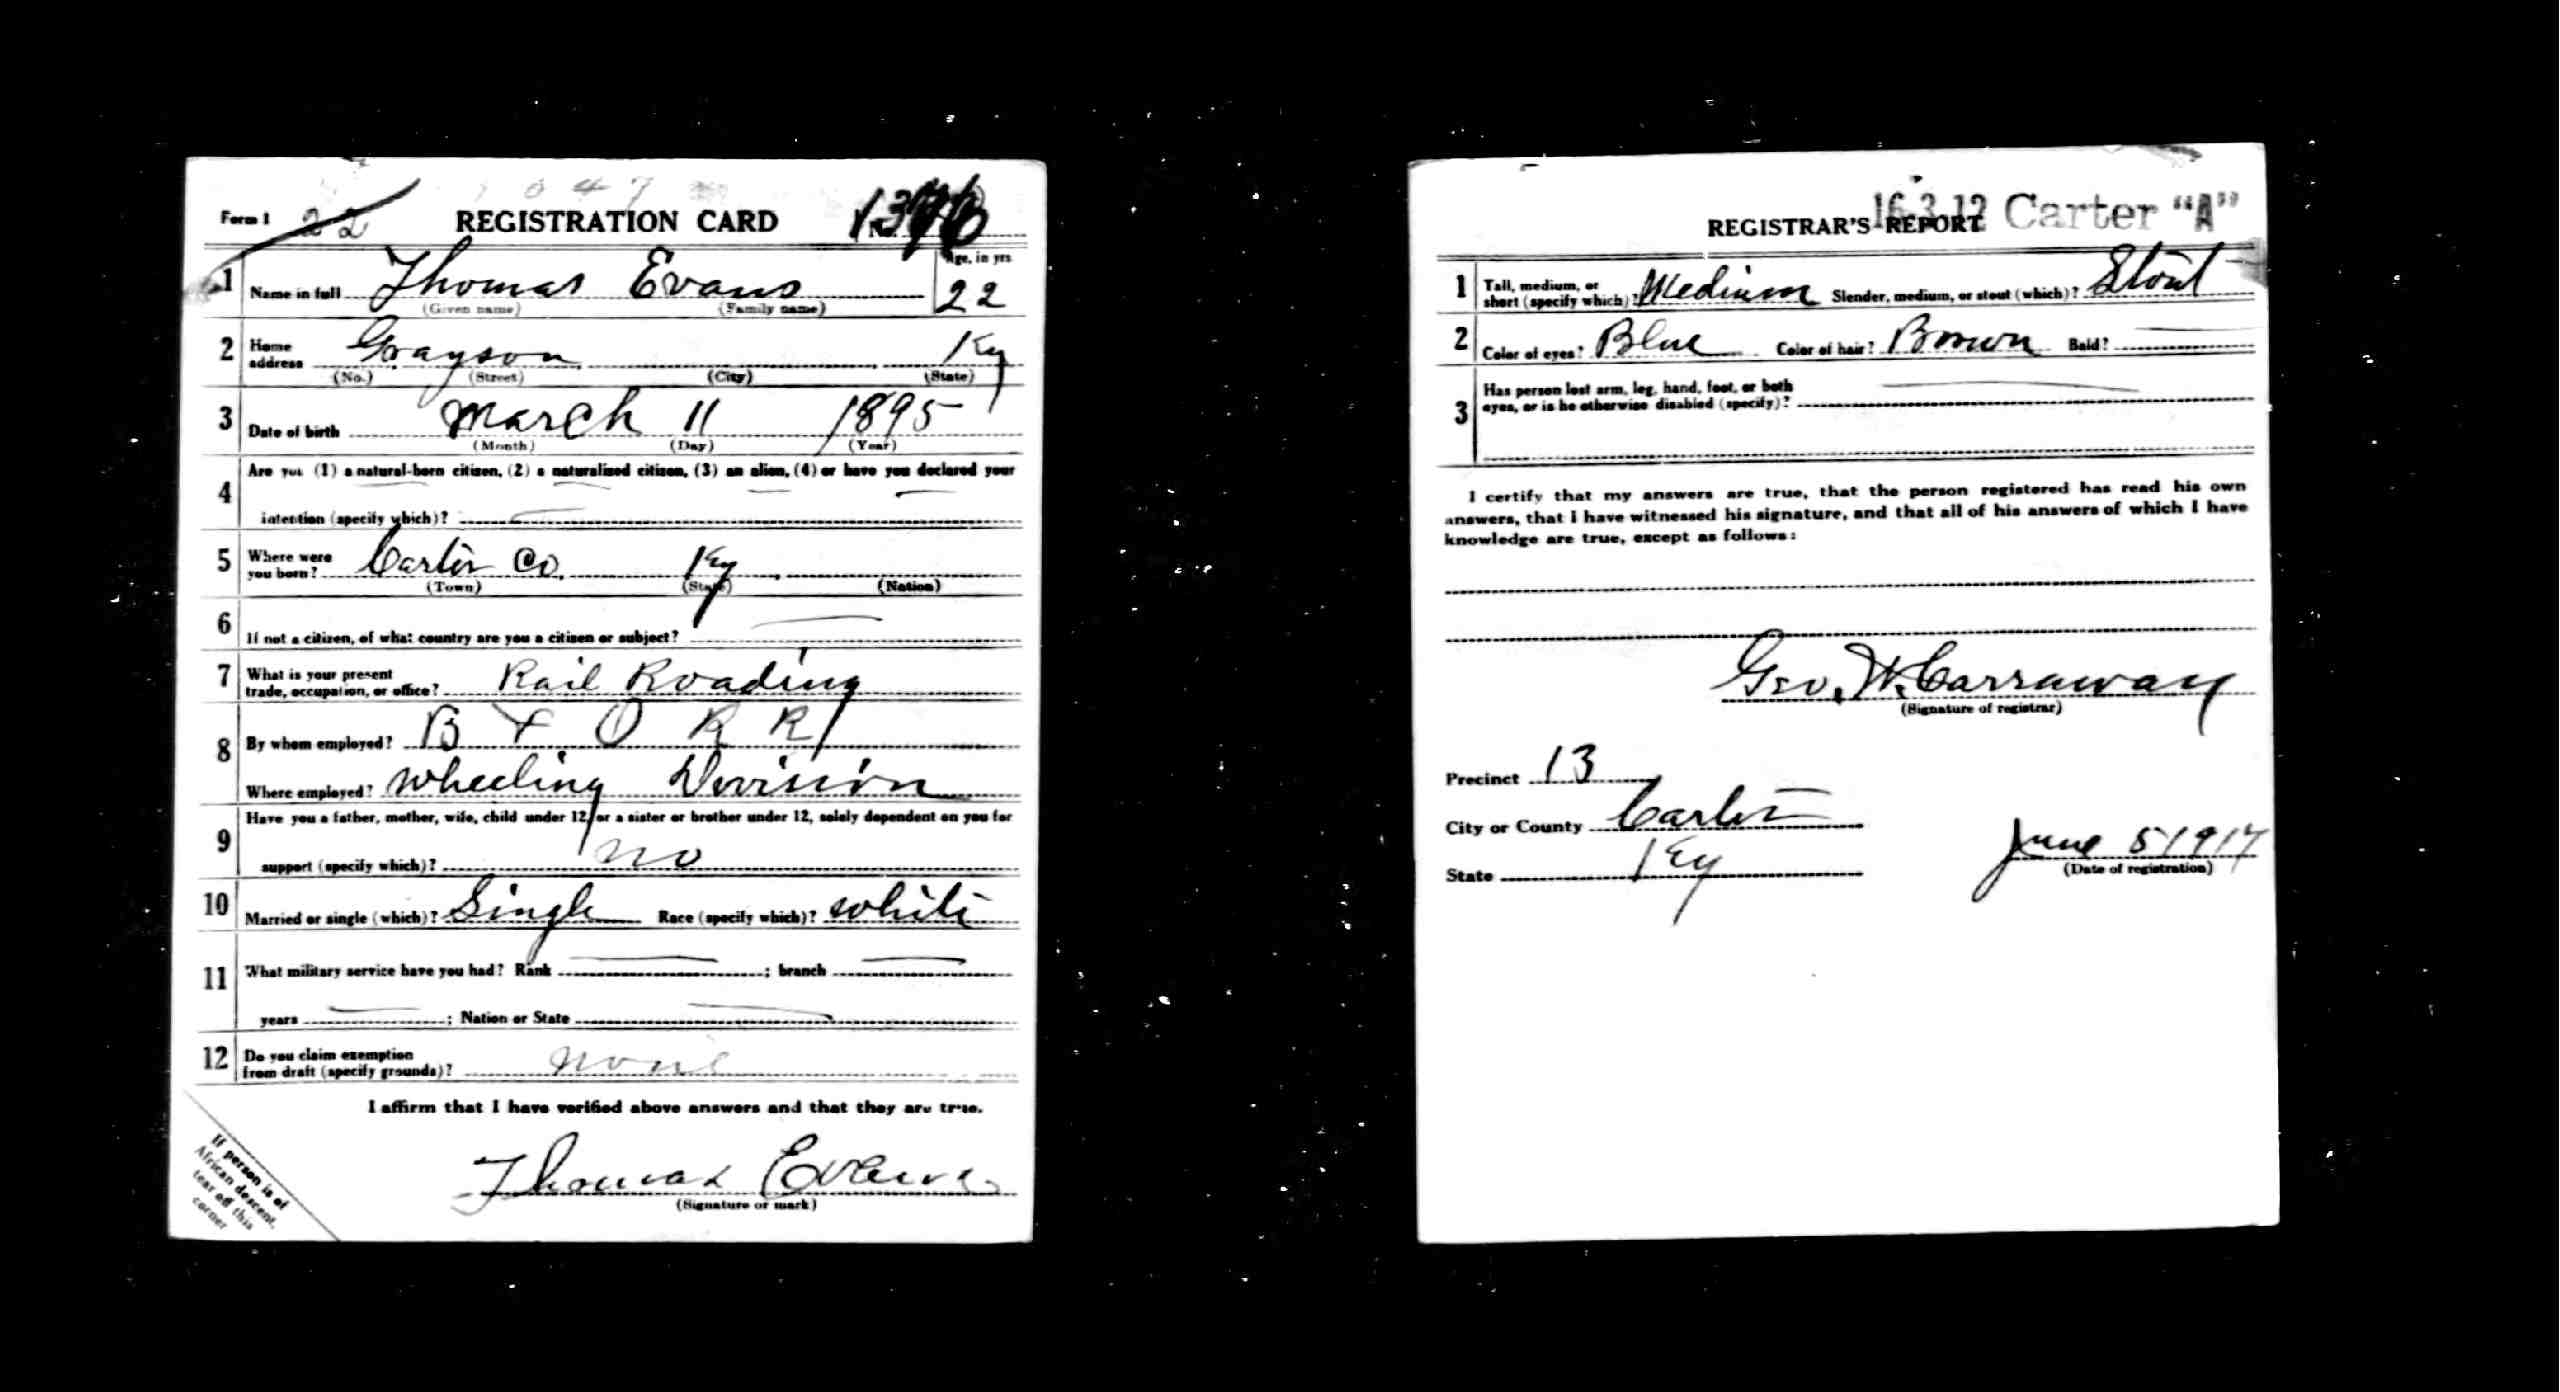 Form 1 22 REGISTRATION CARD No.
Age, in yrs.
1 Name in full Thomas Evans 22
(Given name) (Family name)
2 Home address Grayson Ky
(No.) (Street) (City) (State)
3 Date of birth March 11 1895
(Month) (Day) (Year)
4 Are you (1) a natural-born citizen, (2) a naturalized citizen, (3) an alien, (4) or have you declared your
intention (specify which)?
5 Where were you born? Carter Co, Ky
(Town) (State) (Nation)
6 If not a citizen, of what country are you a citizen or subject?
7 What is your present trade, occupation, or office? Rail Roading
8 By whom employed? B & O R R
Where employed? Wheeling Division
9 Have you a father, mother, wife, child under 12, or a sister or brother under 12, solely dependent on you for
support (specify which)? no
10 Married or single (which)? Single Race (specify which)? White
11 What military service have you had? Rank ; branch
years ; Nation or State
12 Do you claim exemption from draft (specify grounds)? none
I affirm that I have verified above answers and that they are true.
Thomas Evans
(Signature or mark)
If person is of
African descent,
tear off this
corner
16-3-12 Carter "A"
REGISTRAR'S REPORT
1 Tall, medium, or short (specify which)? Medium Slender, medium, or stout (which)? Stout
2 Color of eyes? Blue Color of hair? Brown Bald?
3 Has person lost arm, leg, hand, foot, or both
eyes, or is he otherwise disabled (specify)?
I certify that my answers are true, that the person registered has read his own
answers, that I have witnessed his signature, and that all of his answers of which I have
knowledge are true, except as follows:
Geo. W. Carraway
(Signature of registrar)
Precinct 13
City or County Carter
State Ky
June 5 1917
(Date of registration)